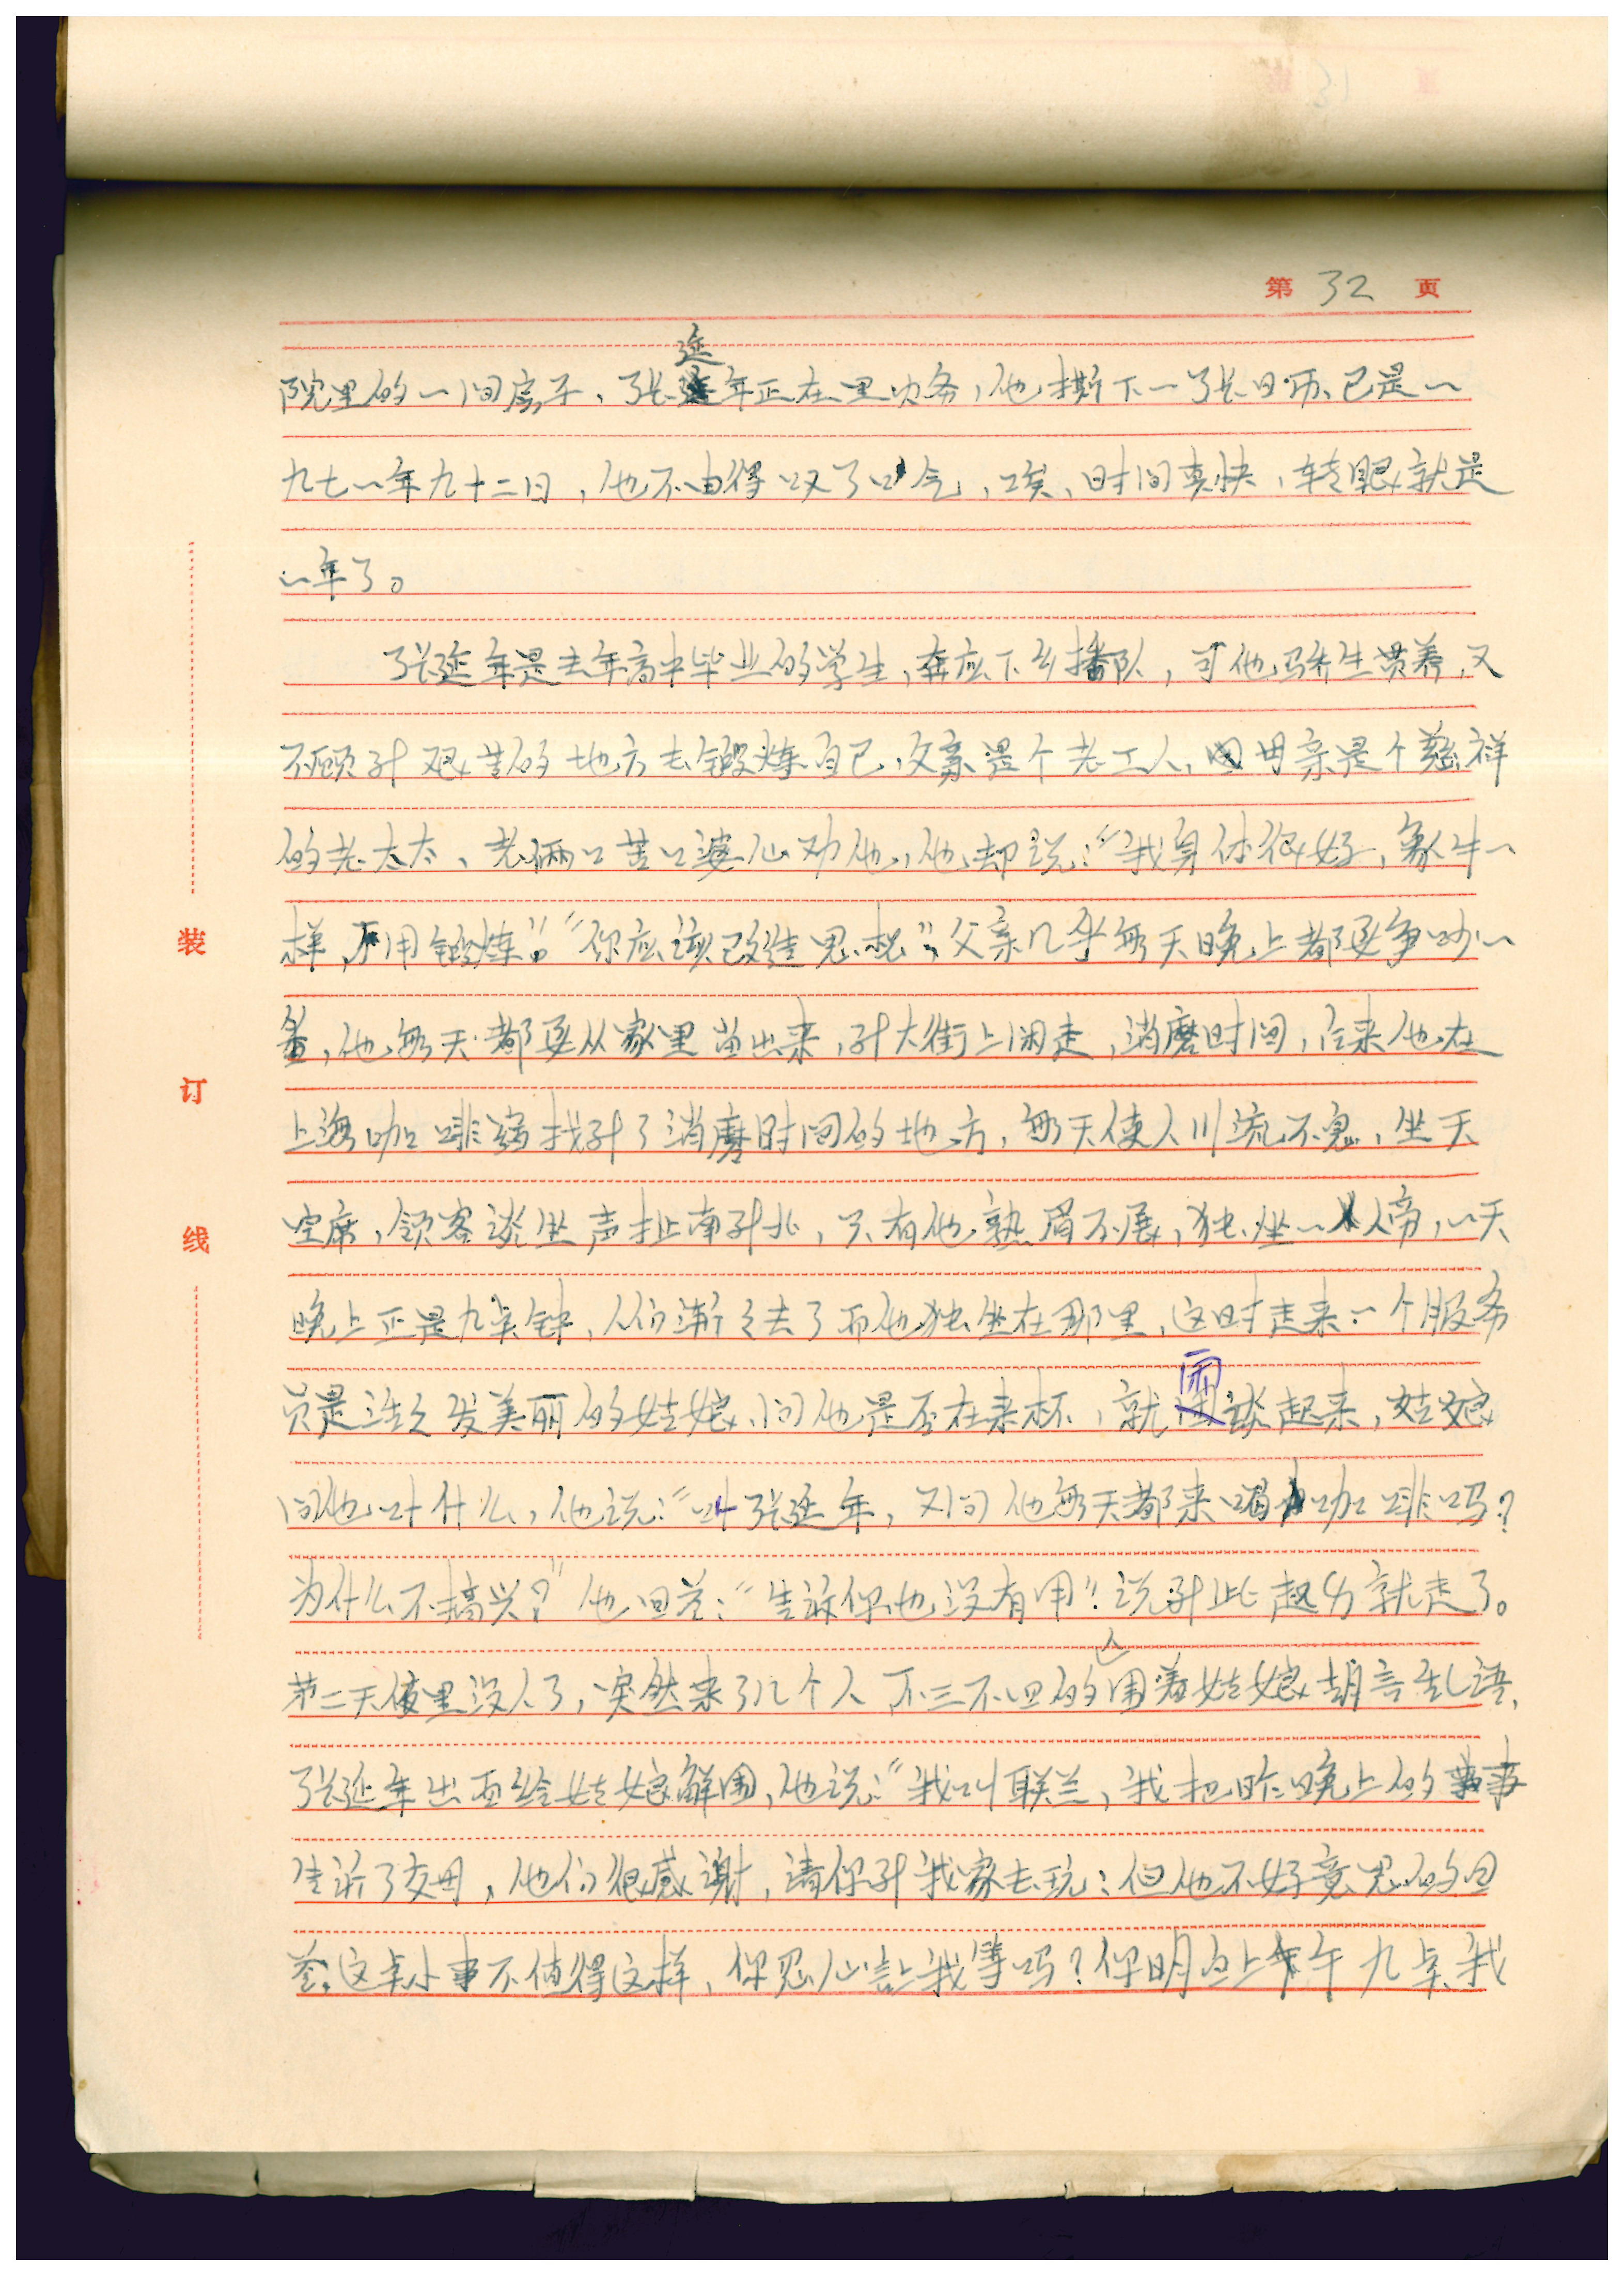 第 32 页
延
院里的一间房子、张延年正在里边务，他撕下一张日历、已是一
九七一年九十二日，他不由得叹了口气，唉、时间真快，转眼就是
一年了。
张延年是去年高中毕业的学生，在应下乡插队，可他骄生惯养，又
不愿到艰苦的地方去锻炼自己，父亲是个老工人，母亲是个慈祥
的老太太、老俩口苦口婆心劝他，他却说：“我身体很好，象牛一
样，不用锻炼”。“你应该改造思想”，父亲几乎每天晚上都要争吵一
番，他每天都要从家里出来，到大街上闲走，消磨时间，后来他在
上海咖啡馆找到了消磨时间的地方，每天使人川流不息，坐天
空席，顾客谈坐声扯南到北，只有他熟眉不展，独坐一人旁，一天
晚上正是九点钟，人们渐々去了而他独坐在那里，这时走来一个服务
员是活々发美丽的姑娘、问他是否在来杯，就闲谈起来，姑娘
闲
问他叫什么，他说：“叫张延年，又问他每天都来喝咖啡吗？
为什么不搞兴？”他回答：“告诉你也没有用”。说到此起身就走了。
人
第二天夜里没人了，突然来了几个人不三不四的围着姑娘胡言乱语，
张延年出面给姑娘解围，他说：“我叫联兰，我把昨晚上的事
告诉了交母，他们很感谢，请你到我家去玩：但他不好意思的回
答：这点小事不值得这样，你忍心让我等吗？你明白上午九点我
装
订
线